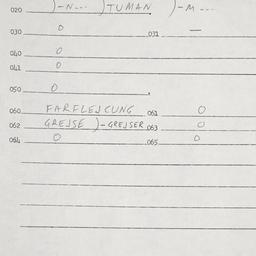 020 )-N... )TUMAN )-M ...
030 0 031 —
040 0
041 0
050 0 .
060 FARFLEJCUNG 061 0
062 GREJSE )-GREJSER 063 0
064 0 065 0